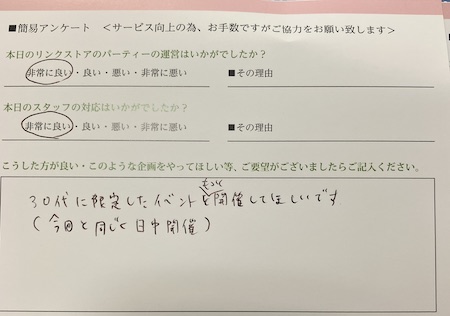 ■簡易アンケート ＜サービス向上の為、お手数ですがご協力をお願い致します＞
本日のリンクストアのパーティーの運営はいかがでしたか？
非常に良い・良い・悪い・非常に悪い ■その理由
本日のスタッフの対応はいかがでしたか？
非常に良い・良い・悪い・非常に悪い ■その理由
こうした方が良い・このような企画をやってほしい等、ご要望がございましたらご記入ください。
30代に限定したイベントを もっと 開催してほしいです
(今回と同じく日中開催)